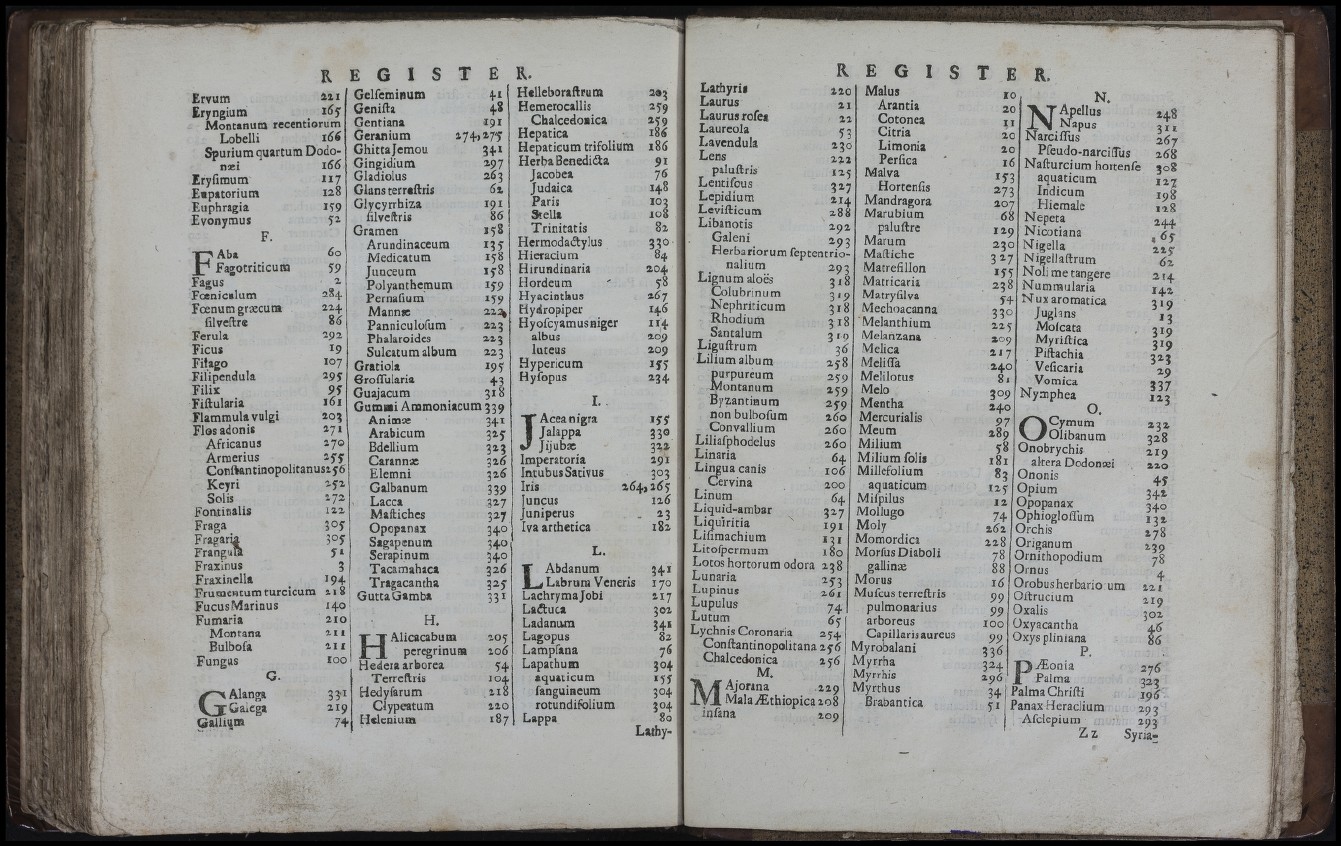 REGISTER.
Ervum 221
Eryngium 165
Montanum recentiorum
Lobelli 166
Spurium quartum Dodo-
næi 166
Eryſimum 117
Eupatorium 128
Euphragia 159
Evonymus 52
F.
FAba 60
Fagotriticum 59
Fagus 2
Fœniculum 284
Fœnum græcum 224
ſilveſtre 86
Ferula 292
Ficus 19
Filago 107
Filipendula 295
Filix 95
Fiſtularia 161
Flammula vulgi 203
Flos adonis 271
Africanus 270
Armerius 255
Conſtantinopolitanus 256
Keyri 252
Solis 272
Fontinalis 122
Fraga 305
Fragaria 305
Frangula 51
Fraxinus 3
Fraxinella 194
Frumentum turcicum 218
Fucus Marinus 140
Fumaria 210
Montana 211
Bulboſa 211
Fungus 100
G.
GAlanga 331
Galega 219
Gallium 74
Gelſeminum 41
Geniſta 48
Gentiana 191
Geranium 274, 275
Ghitta Jemou 341
Gingidium 297
Gladiolus 263
Glans terreſtris 62
Glycyrrhiza 191
ſilveſtris 86
Gramen 158
Arundinaceum 135
Medicatum 158
Junceum 158
Polyanthemum 159
Pernaſium 159
Mannæ 222
Panniculoſum 223
Phalaroides 223
Sulcatum album 223
Gratiola 195
Groſſularia 43
Guajacum 318
Gummi Ammoniacum 339
Animæ 341
Arabicum 325
Bdellium 323
Carannæ 326
Elemni 326
Galbanum 339
Lacca 327
Maſtiches 327
Opopanax 340
Sagapenum 340
Serapinum 340
Tacamahaca 326
Tragacantha 325
Gutta Gamba 331
H.
HAlicacabum 205
peregrinum 206
Hedera arborea 54
Terreſtris 104
Hedyſarum 218
Clypeatum 220
Helenium 187
Helleboraſtrum 203
Hemerocallis 259
Chalcedonica 259
Hepatica 186
Hepaticum trifolium 186
Herba Benedicta 91
Jacobea 76
Judaica 148
Paris 103
Stella 108
Trinitatis 82
Hermodactylus 330
Hieracium 84
Hirundinaria 204
Hordeum 58
Hyacinthus 267
Hydropiper 146
Hyoſcyamus niger 114
albus 209
luteus 209
Hypericum 155
Hyſopus 234
I.
JAcea nigra 155
Jalappa 330
Jijubæ 322
Imperatoria 291
Intubus Sativus 303
Iris 264, 265
Juncus 126
Juniperus 23
Iva arthetica 182
L.
LAbdanum 341
Labrum Veneris 170
Lachryma Jobi 217
Lactuca 302
Ladanum 341
Lagopus 82
Lampſana 76
Lapathum 304
aquaticum 155
ſanguineum 304
rotundifolium 304
Lappa 80
Lathy-
REGISTER.
Lathyris 220
Laurus 21
Laurus roſea 22
Laureola 53
Lavendula 230
Lens 222
paluſtris 125
Lentiſcus 327
Lepidium 214
Leviſticum 288
Libanotis 292
Galeni 293
Herbariorum ſeptentrio-
nalium 293
Lignum aloës 318
Colubrinum 319
Nephriticum 318
Rhodium 318
Santalum 319
Liguſtrum 36
Lilium album 258
purpureum 259
Montanum 259
Byzantinum 259
non bulboſum 260
Convallium 260
Liliaſphodelus 260
Linaria 64
Lingua canis 106
Cervina 200
Linum 64
Liquid-ambar 327
Liquiritia 191
Liſimachium 131
Litoſpermum 180
Lotos hortorum odora 238
Lunaria 253
Lupinus 261
Lupulus 74
Lutum 65
Lychnis Coronaria 254
Conſtantinopolitana 256
Chalcedonica 256
M.
MAjorana 229
Mala Æthiopica 208
inſana 209
Malus 10
Arantia 20
Cotonea 11
Citria 20
Limonia 20
Perſica 16
Malva 153
Hortenſis 273
Mandragora 207
Marubium 68
paluſtre 129
Marum 230
Maſtiche 327
Matreſillon 155
Matricaria 238
Matryſilva 54
Mechoacanna 330
Melanthium 225
Melanzana 209
Melica 217
Meliſſa 240
Melilotus 81
Melo 309
Mentha 240
Mercurialis 97
Meum 289
Milium 58
Milium ſolis 181
Millefolium 83
aquaticum 125
Miſpilus 12
Mollugo 74
Moly 262
Momordica 228
Morſus Diaboli 78
gallinæ 88
Morus 16
Muſcus terreſtris 99
pulmonarius 99
arboreus 100
Capillaris aureus 99
Myrobalani 336
Myrrha 324
Myrrhis 296
Myrthus 34
Brabantica 51
N.
NApellus 248
Napus 311
Narciſſus 267
Pſeudo-narciſſus 268
Naſturcium hortenſe 308
aquaticum 127
Indicum 198
Hiemale 128
Nepeta 244
Nicotiana 165
Nigella 225
Nigellaſtrum 62
Noli me tangere 214
Nummularia 142
Nux aromatica 319
Juglans 13
Moſcata 319
Myriſtica 319
Piſtachia 323
Veſicaria 29
Vomica 337
Nymphea 123
O.
OCymum 232
Olibanum 328
Onobrychis 219
altera Dodonæi 220
Ononis 45
Opium 342
Opopanax 340
Ophiogloſſum 132
Orchis 278
Origanum 239
Ornithopodium 78
Ornus 4
Orobus herbario um 221
Oſtrucium 219
Oxalis 302
Oxyacantha 46
Oxys pliniana 86
P.
PÆonia 276
Palma 323
Palma Chriſti 196
Panax Heraclium 293
Aſclepium 293
Z z Syria-